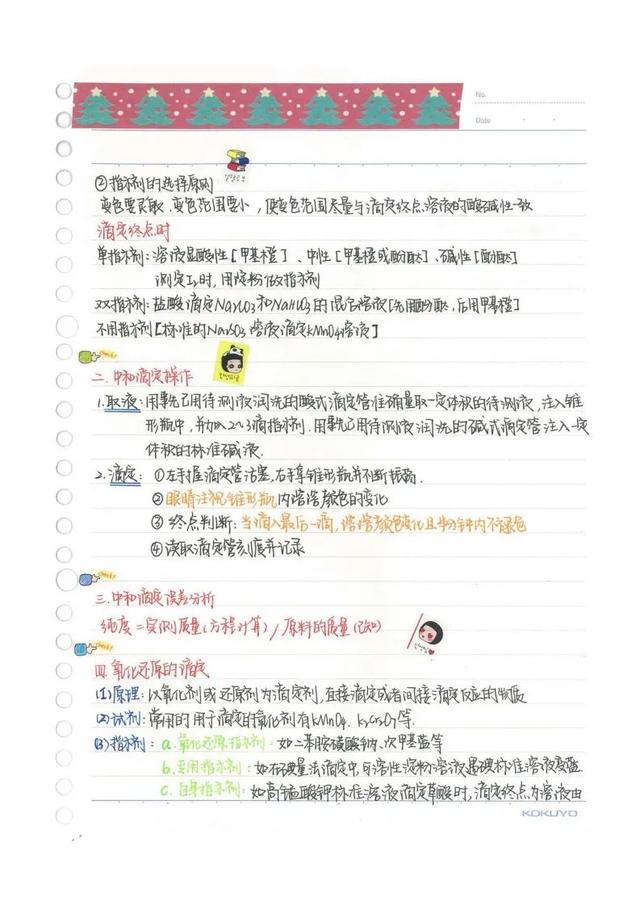 No.
Date
②指示剂的选择原则
变色要灵敏.变色范围要小,使变色范围尽量与滴定终点溶液的酸碱性一致
滴定终点时
单指示剂:溶液显酸性[甲基橙]、中性[甲基橙或酚酞]、碱性[酚酞]
测定I₂时,用淀粉做指示剂
双指示剂:盐酸滴定Na₂CO₃和NaHCO₃的混合溶液[先用酚酞,后用甲基橙]
不用指示剂[标准的Na₂SO₃溶液滴定KMnO₄溶液]
二.中和滴定操作
1.取液:用事先已用待测液润洗的酸式滴定管准确量取一定体积的待测液,注入锥
形瓶中,并加入2~3滴指示剂.用事先已用待测液润洗的碱式滴定管注入一定
体积的标准碱液.
2.滴定:①左手握滴定管活塞,右手拿锥形瓶并不断振荡.
②眼睛注视锥形瓶内溶液颜色的变化
③终点判断:当滴入最后一滴,溶液颜色变化且半分钟内不褪色
④读取滴定管刻度并记录
三.中和滴定误差分析
纯度=实测质量(方程计算)/原料的质量(已知)
四.氧化还原的滴定
(1)原理:以氧化剂或还原剂为滴定剂,直接滴定或者间接滴定反应的物质
(2)试剂:常用的用于滴定的氧化剂有KMnO₄.K₂Cr₂O₇等.
(3)指示剂:a.氧化还原指示剂:如二苯胺磺酸钠、次甲基蓝等
b.专用指示剂:如在碘量法滴定中,可溶性淀粉溶液遇碘标准溶液变蓝.
c.自身指示剂:如高锰酸钾标准溶液滴定草酸时,滴定终点为溶液由
KOKUYO